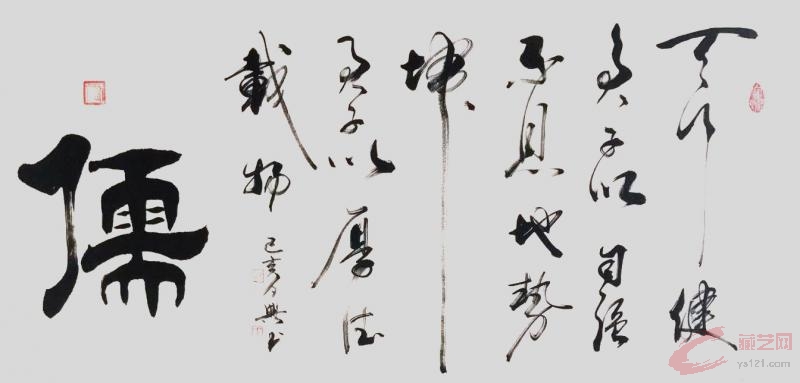 天行健
君子以自强
不息地势
坤
君子以厚德
载物
己亥
儒
藏艺网
ys121.com